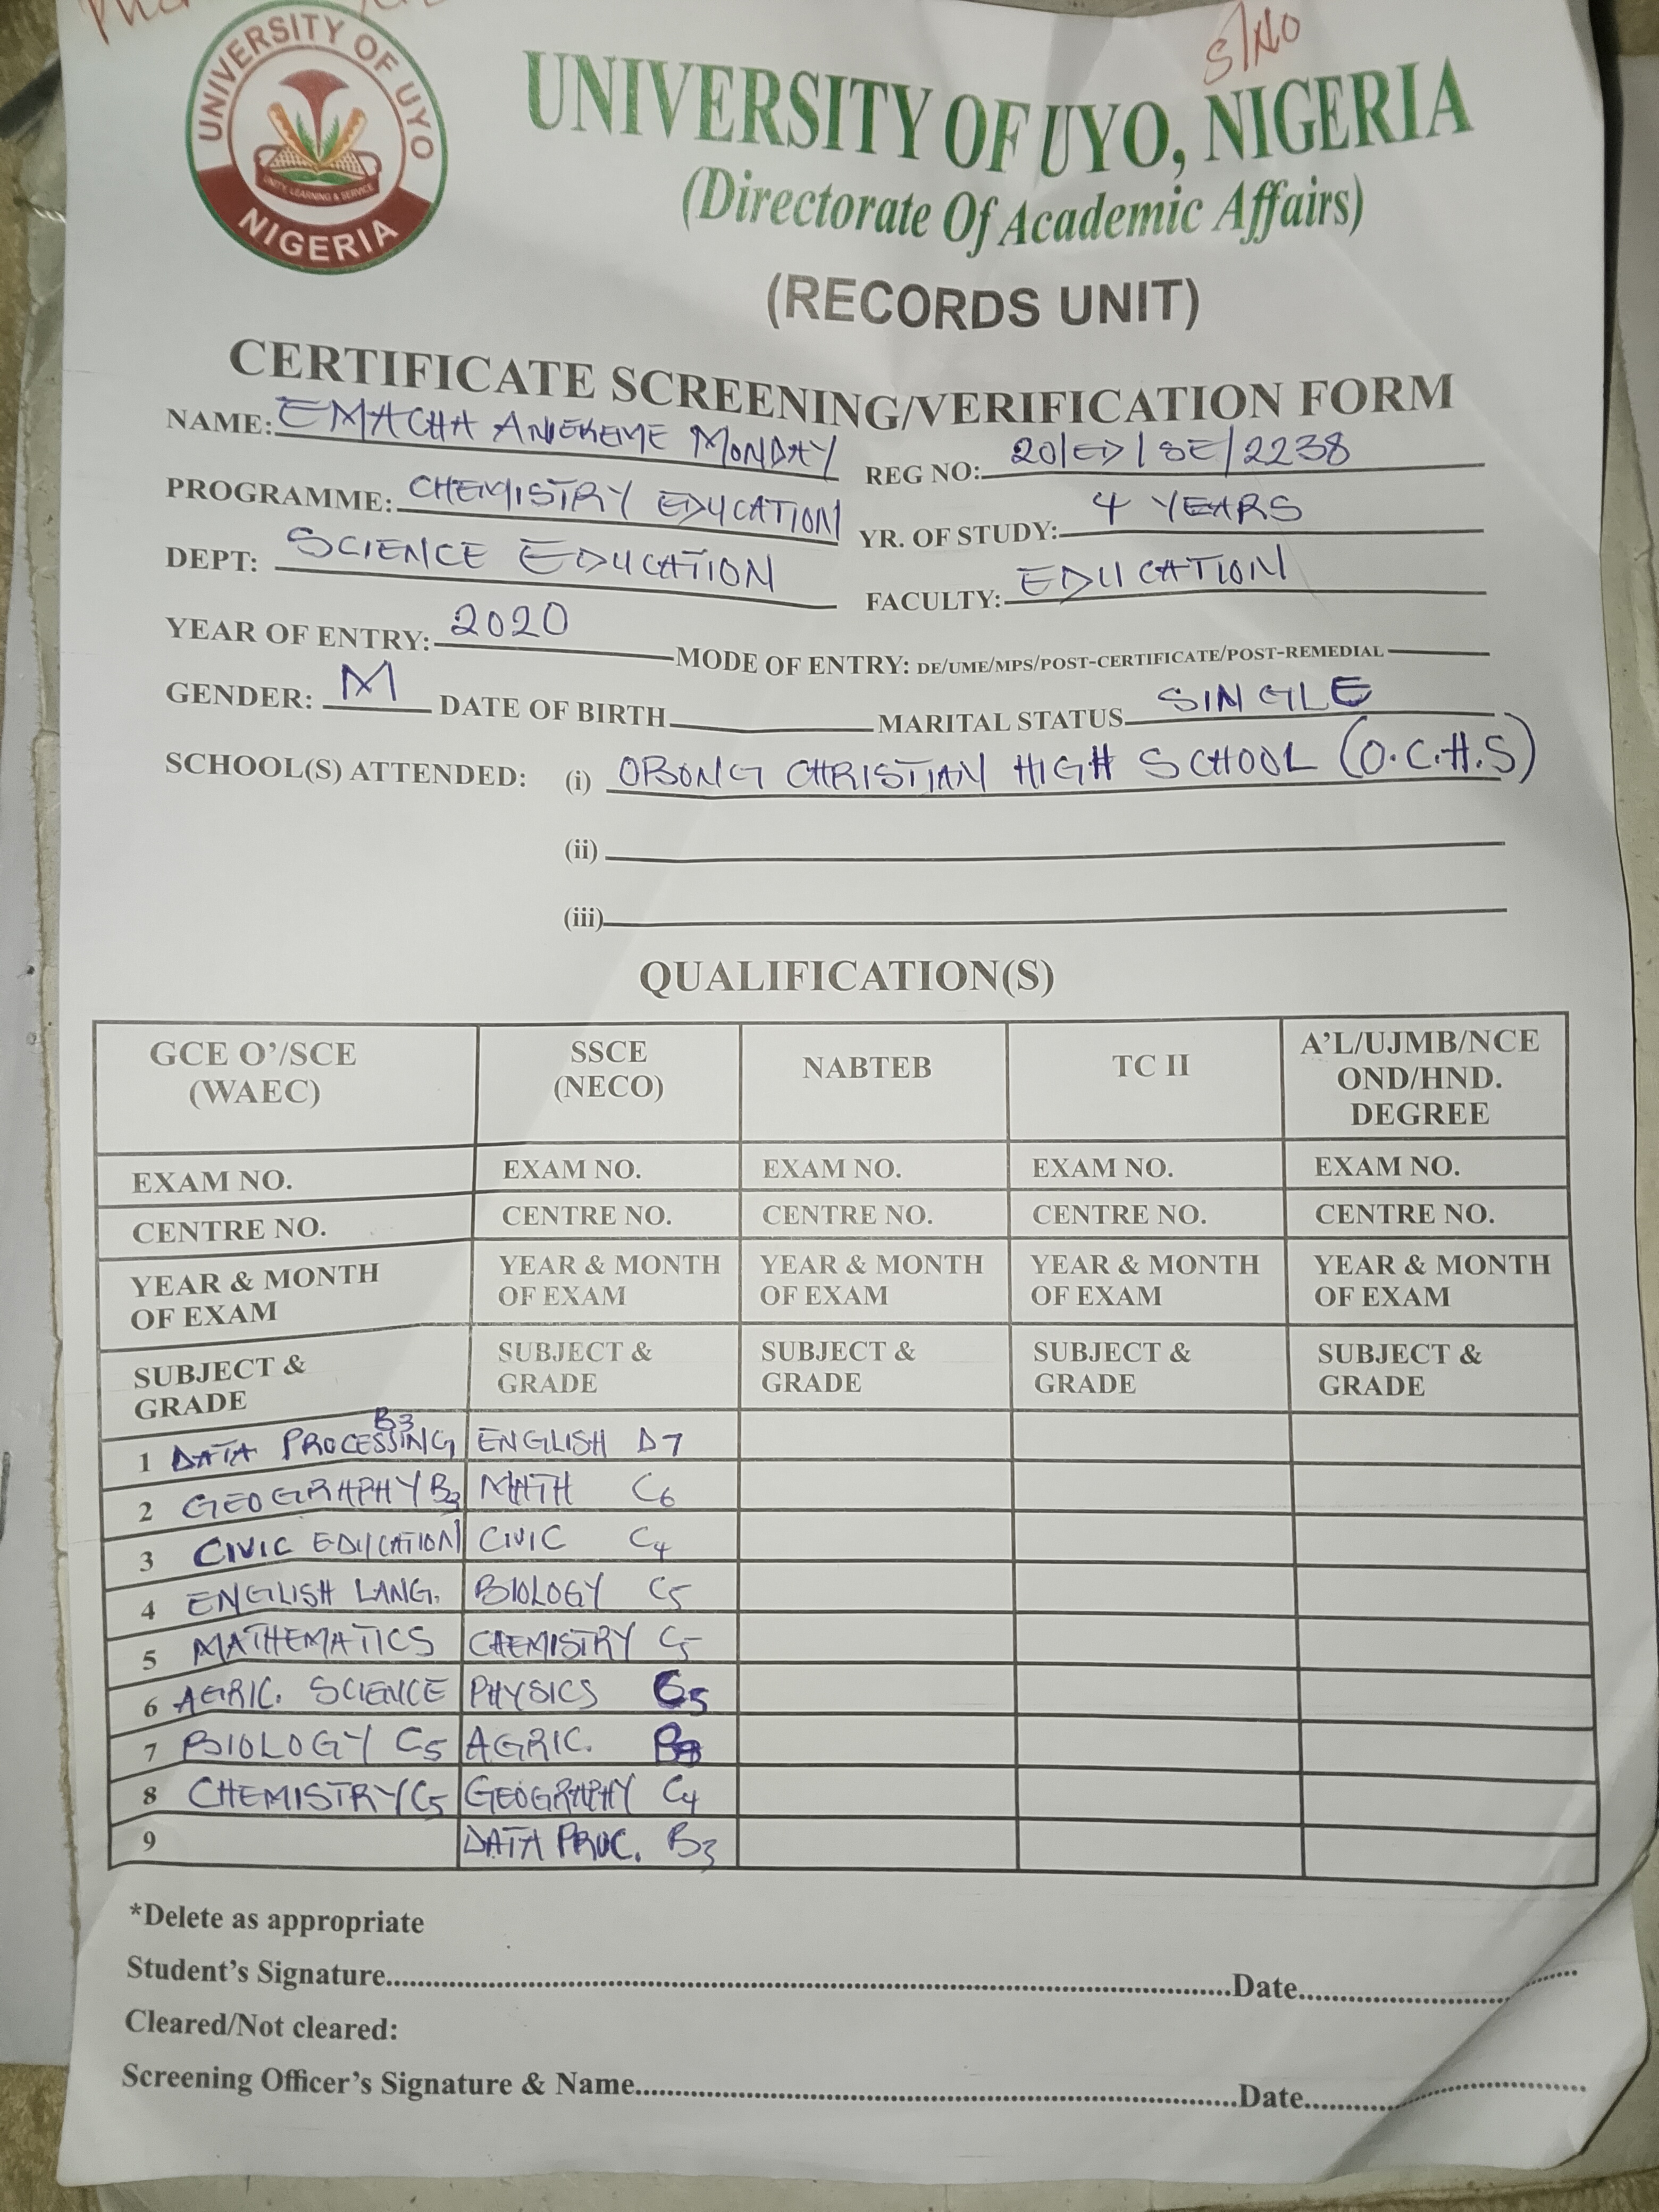 S/NO
UNIVERSITY OF UYO
UNITY, LEARNING & SERVICE
NIGERIA
UNIVERSITY OF UYO, NIGERIA
(Directorate Of Academic Affairs)
(RECORDS UNIT)
CERTIFICATE SCREENING/VERIFICATION FORM
NAME: EMACHA ANIEKEME MONDAY REG NO: 20/ED/SE/2238
PROGRAMME: CHEMISTRY EDUCATION YR. OF STUDY: 4 YEARS
DEPT: SCIENCE EDUCATION FACULTY: EDUCATION
YEAR OF ENTRY: 2020 MODE OF ENTRY: DE/UME/MPS/POST-CERTIFICATE/POST-REMEDIAL
GENDER: M DATE OF BIRTH MARITAL STATUS SINGLE
SCHOOL(S) ATTENDED: (i) OBONG CHRISTIAN HIGH SCHOOL (O.C.H.S)
(ii)
(iii)
QUALIFICATION(S)
GCE O'/SCE (WAEC) SSCE (NECO) NABTEB TC II A'L/UJMB/NCE OND/HND. DEGREE
EXAM NO. EXAM NO. EXAM NO. EXAM NO. EXAM NO.
CENTRE NO. CENTRE NO. CENTRE NO. CENTRE NO. CENTRE NO.
YEAR & MONTH OF EXAM YEAR & MONTH OF EXAM YEAR & MONTH OF EXAM YEAR & MONTH OF EXAM YEAR & MONTH OF EXAM
SUBJECT & GRADE SUBJECT & GRADE SUBJECT & GRADE SUBJECT & GRADE SUBJECT & GRADE
1 DATA PROCESSING B3 ENGLISH D7
2 GEOGRAPHY B3 MATH C6
3 CIVIC EDUCATION CIVIC C4
4 ENGLISH LANG. BIOLOGY C5
5 MATHEMATICS CHEMISTRY C5
6 AGRIC. SCIENCE PHYSICS C5
7 BIOLOGY C5 AGRIC.
8 CHEMISTRY C5 GEOGRAPHY C4
9 DATA PROC. B3
*Delete as appropriate
Student's Signature Date
Cleared/Not cleared:
Screening Officer's Signature & Name Date